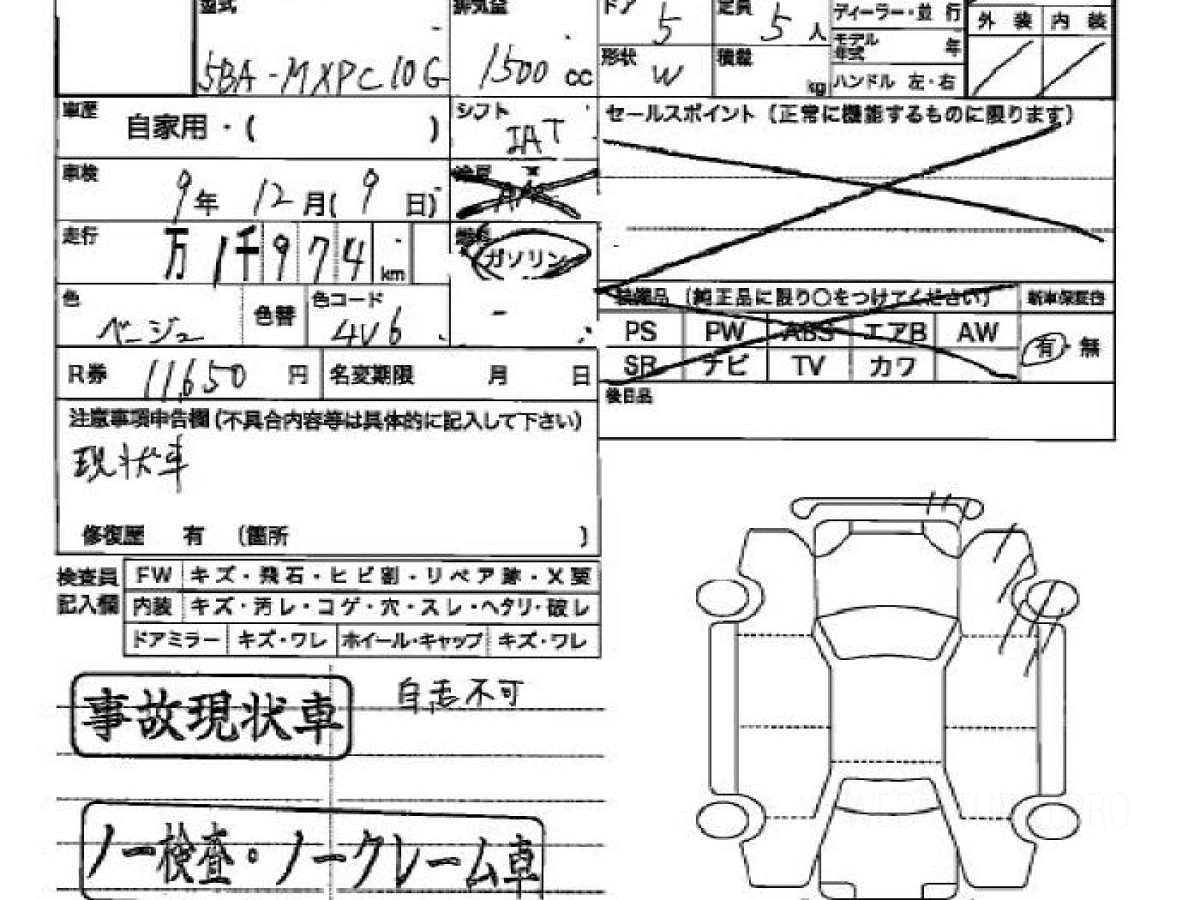 型式 排気量 ドア 定員 ディーラー・並行
5BA-MXPC10G 1500 cc 5 5 人
外装 内装
モデル年式 年
形状 W 積載 kg ハンドル 左・右
車歴 自家用・( ) シフト IAT
セールスポイント (正常に機能するものに限ります)
車検 9年 12月( 9 日)
走行 万 1千974 km ガソリン
色 ベージュ 色替 色コード 4V6
装備品 (純正品に限り○をつけてください) 新車保証書
PS PW ABS エアB AW 有・無
SR ナビ TV カワ
R券 11,650 円 名変期限 月 日
後日品
注意事項申告欄(不具合内容等は具体的に記入して下さい)
現状車
修復歴 有 (箇所 )
検査員記入欄
FW キズ・飛石・ヒビ割・リペア跡・X要
内装 キズ・汚レ・コゲ・穴・スレ・ヘタリ・破レ
ドアミラー キズ・ワレ ホイール・キャップ キズ・ワレ
自走不可
事故現状車
ノー検査・ノークレーム車